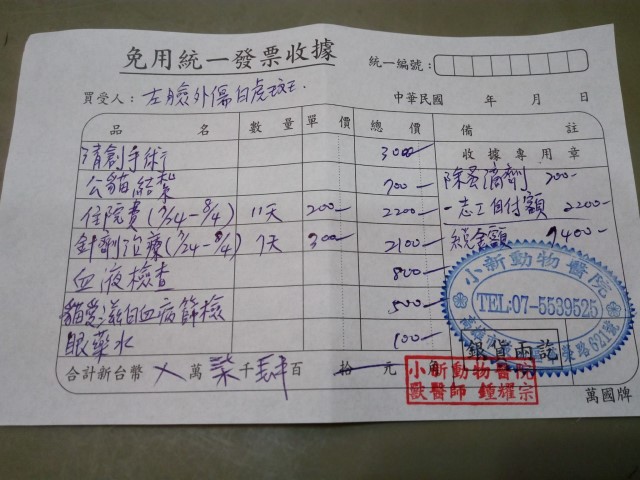 免用統一發票收據
統一編號:
買受人: 左臉外傷白虎斑
中華民國 年 月 日
品名 數量 單價 總價 備註
收據專用章
清創手術 3000
公貓結紮 700 除蚤滴劑 200
住院費(7/24-8/4) 11天 200 2200 -志工自付額 2200
針劑治療(7/24-8/4) 7天 300 2100 總金額 7400
血液檢查 800
貓愛滋白血病篩檢 500
眼藥水 100
小新動物醫院
TEL:07-5539525
銀貨兩訖
合計新台幣 萬 柒 千 肆 百 拾 元 角
小新動物醫院
獸醫師 鍾耀宗
萬國牌